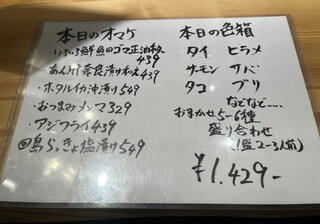 本日のオマケ
・いろいろ鮮魚のゴマ正油和え
439
・あん肝奈良漬け和え439
・ホタルイカ沖漬け549
・おつまみメンマ329
・アジフライ439
回島らっきょ塩漬け549
本日の色箱
タイ ヒラメ
サーモン サバ
タコ ブリ
などなど....
おまかせ5-6種
盛り合わせ
(1盛2-3人前)
¥1.429-